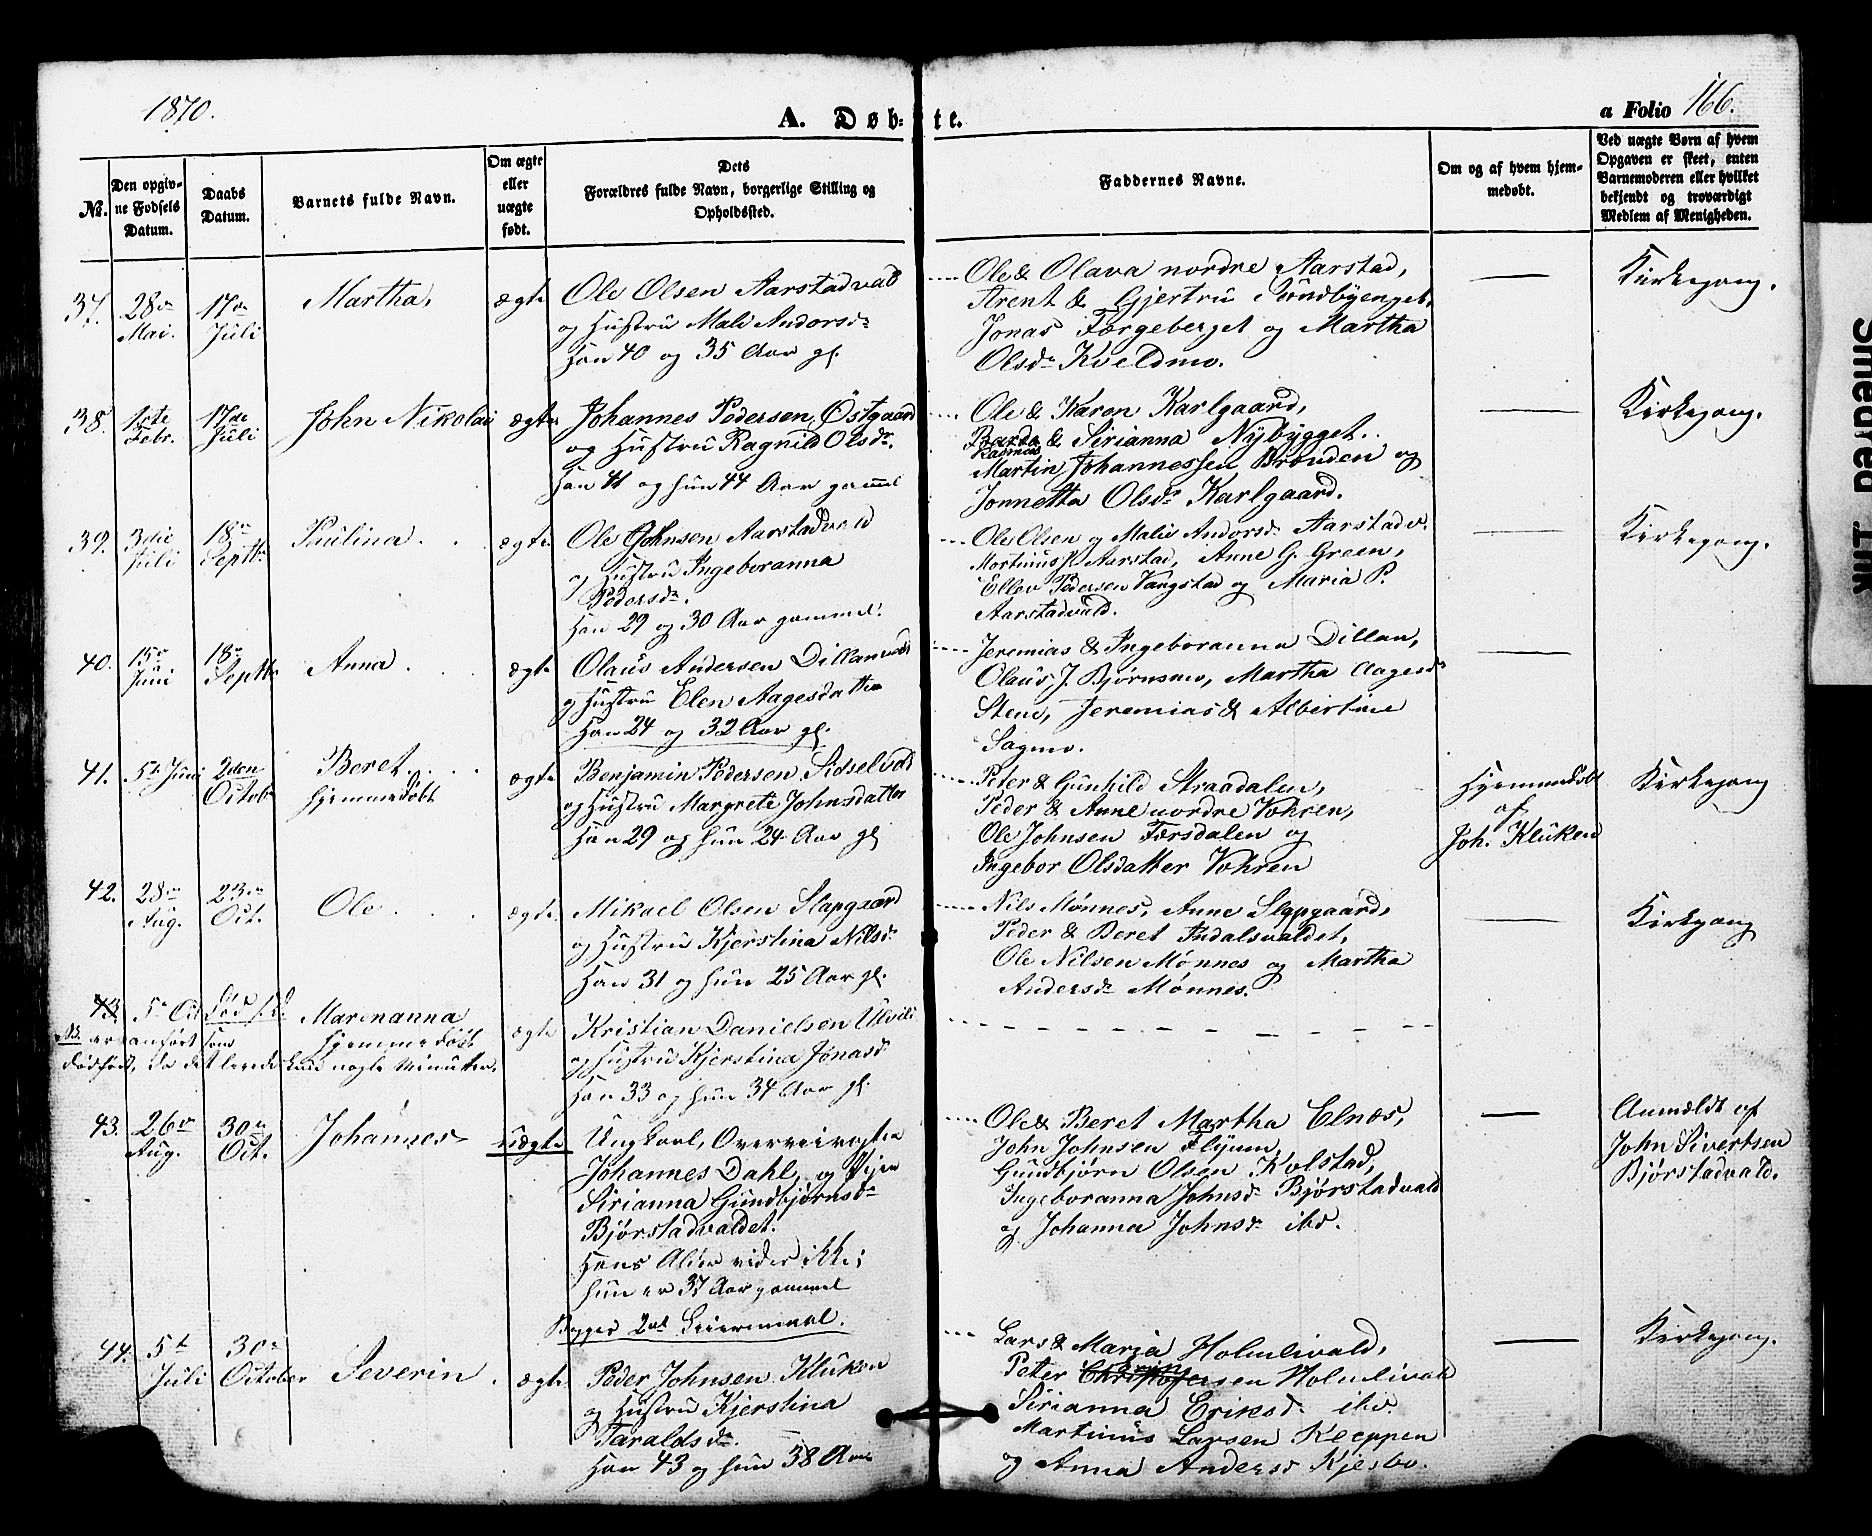 1870.
A. Døb-te.
a Folio 166.
No.
Den opgiv-
ne Fødsels
Datum.
Daabs
Datum.
Barnets fulde Navn.
Om ægte
eller
uægte
født.
Dets
Forældres fulde Navn, borgerlige Stilling og
Opholdssted.
Faddernes Navne.
Om og af hvem hjem-
medøbt.
Ved uægte Børn af hvem
Opgaven er skeet, enten
Barnemoderen eller hvilket
bekjendt og troværdigt
Medlem af Menigheden.
37.
28de
Mai.
17de
Juli
Martha,
ægte
Ole Olsen Aarstadvald
og Hustru Mali Andorsdr
Han 40 og 35 Aar gl.
Ole & Olava nordre Aarstad,
Arent & Gjertru Sundbyenget,
Jonas Færgeberget og Martha
Olsdr Kveldmo.
Kirkegang.
38.
1ste
Febr.
17de
Juli
John Nikolai
ægte
Johannes Pedersen Østgaard
og Hustru Ragnild Olsdr.
Han 41 og hun 44 Aar gammel
Ole & Karen Karlgaard,
& Sirianna Nybygget.
Rasmus
Martin Johannessen Brønden og
Jonnetta Olsdr Karlgaard.
Kirkegang.
39.
3die
Juli
18de
Septbr
Paulina
ægte
Ole Johnsen Aarstadvald
og Hustru Ingeboranna
Pedersdr.
Han 29 og 30 Aar gammel.
Ole Olsen og Malie Andorsdr Aarstadv.
Mortinus P. Aarstad, Anne G. Green,
Ellev Pedersen Vangstad og Maria P.
Aarstadvald.
Kirkegang.
40.
15de
Juni
18de
Septbr
Anna.
ægte
Olaus Andersen Dillanvald
og Hustru Elen Aagesdatter
Han 24 og 32 Aar gl.
Jeremias & Ingeboranna Dillan,
Olaus J. Bjørnsmo, Martha Aagesdr
Stene, Jeremias & Albertine
Sagmo.
41.
5te Juni
2den
Octobr
Beret
hjemmedøbt
ægte
Benjamin Pedersen Sidselvold
og Hustru Margrete Johnsdatter
Han 29 og hun 24 Aar gl
Peter & Gunhild Straadalen,
Peder & Anne nordre Vohren,
Ole Johnsen Færsdalen og
Ingebor Olsdatter Vohren
Hjemmedøbt
af
Joh. Kluken
Kirkegang
42.
28de
Aug.
23de
Oct.
Ole
ægte
Mikael Olsen Slapgaard
og Hustru Kjerstina Nilsdr
Han 31 og hun 25 Aar gl.
Nils Mønnes, Anne Slapgaard,
Peder & Beret Indalsvaldet,
Ole Nilsen Mønnes og Martha
Andersdr Mønnes.
Kirkegang
43.
5te Oct
Marenanna
hjemmedøbt
NB. er anført som
dødfødt, da det levede kund nogle Minutter.
ægte
Kristian Danielsen Ulvili
og Hustru Kjerstina Jonasdr
Han 33 og hun 34 Aar gl.
43.
26de
Aug.
30de
Oct.
Johannes
uægte
Ungkarl,
Johannes Dahl, og Pige
Sirianna Gundbjørnsdr
Bjørstadvaldet.
Hans Alder vides ikke;
hun er 37 Aar gammel
Begges 2det Leiermaal.
Ole & Beret Martha Elnæs,
John Johnsen Flyum,
Gundbjørn Olsen Kolstad,
Ingeboranna Johnsdr Bjørstadvald
og Johanna Johnsdr ibd.
Anmeldt af
John Sivertsen
Bjørstadvald.
44.
5te
Juli
30de
October
Severin
ægte
Peder Johnsen Kluken
og Hustru Kjerstina
Taraldsdr.
Han 43 og hun 38 Aar
Lars & Maria Holmlivald,
Peter Holmlivald
Sirianna Eriksdr ibd.
Martinus Larsen Keeppen
og Anna Andersdr Kjesbo.
Kirkegang.
Smeared Ink